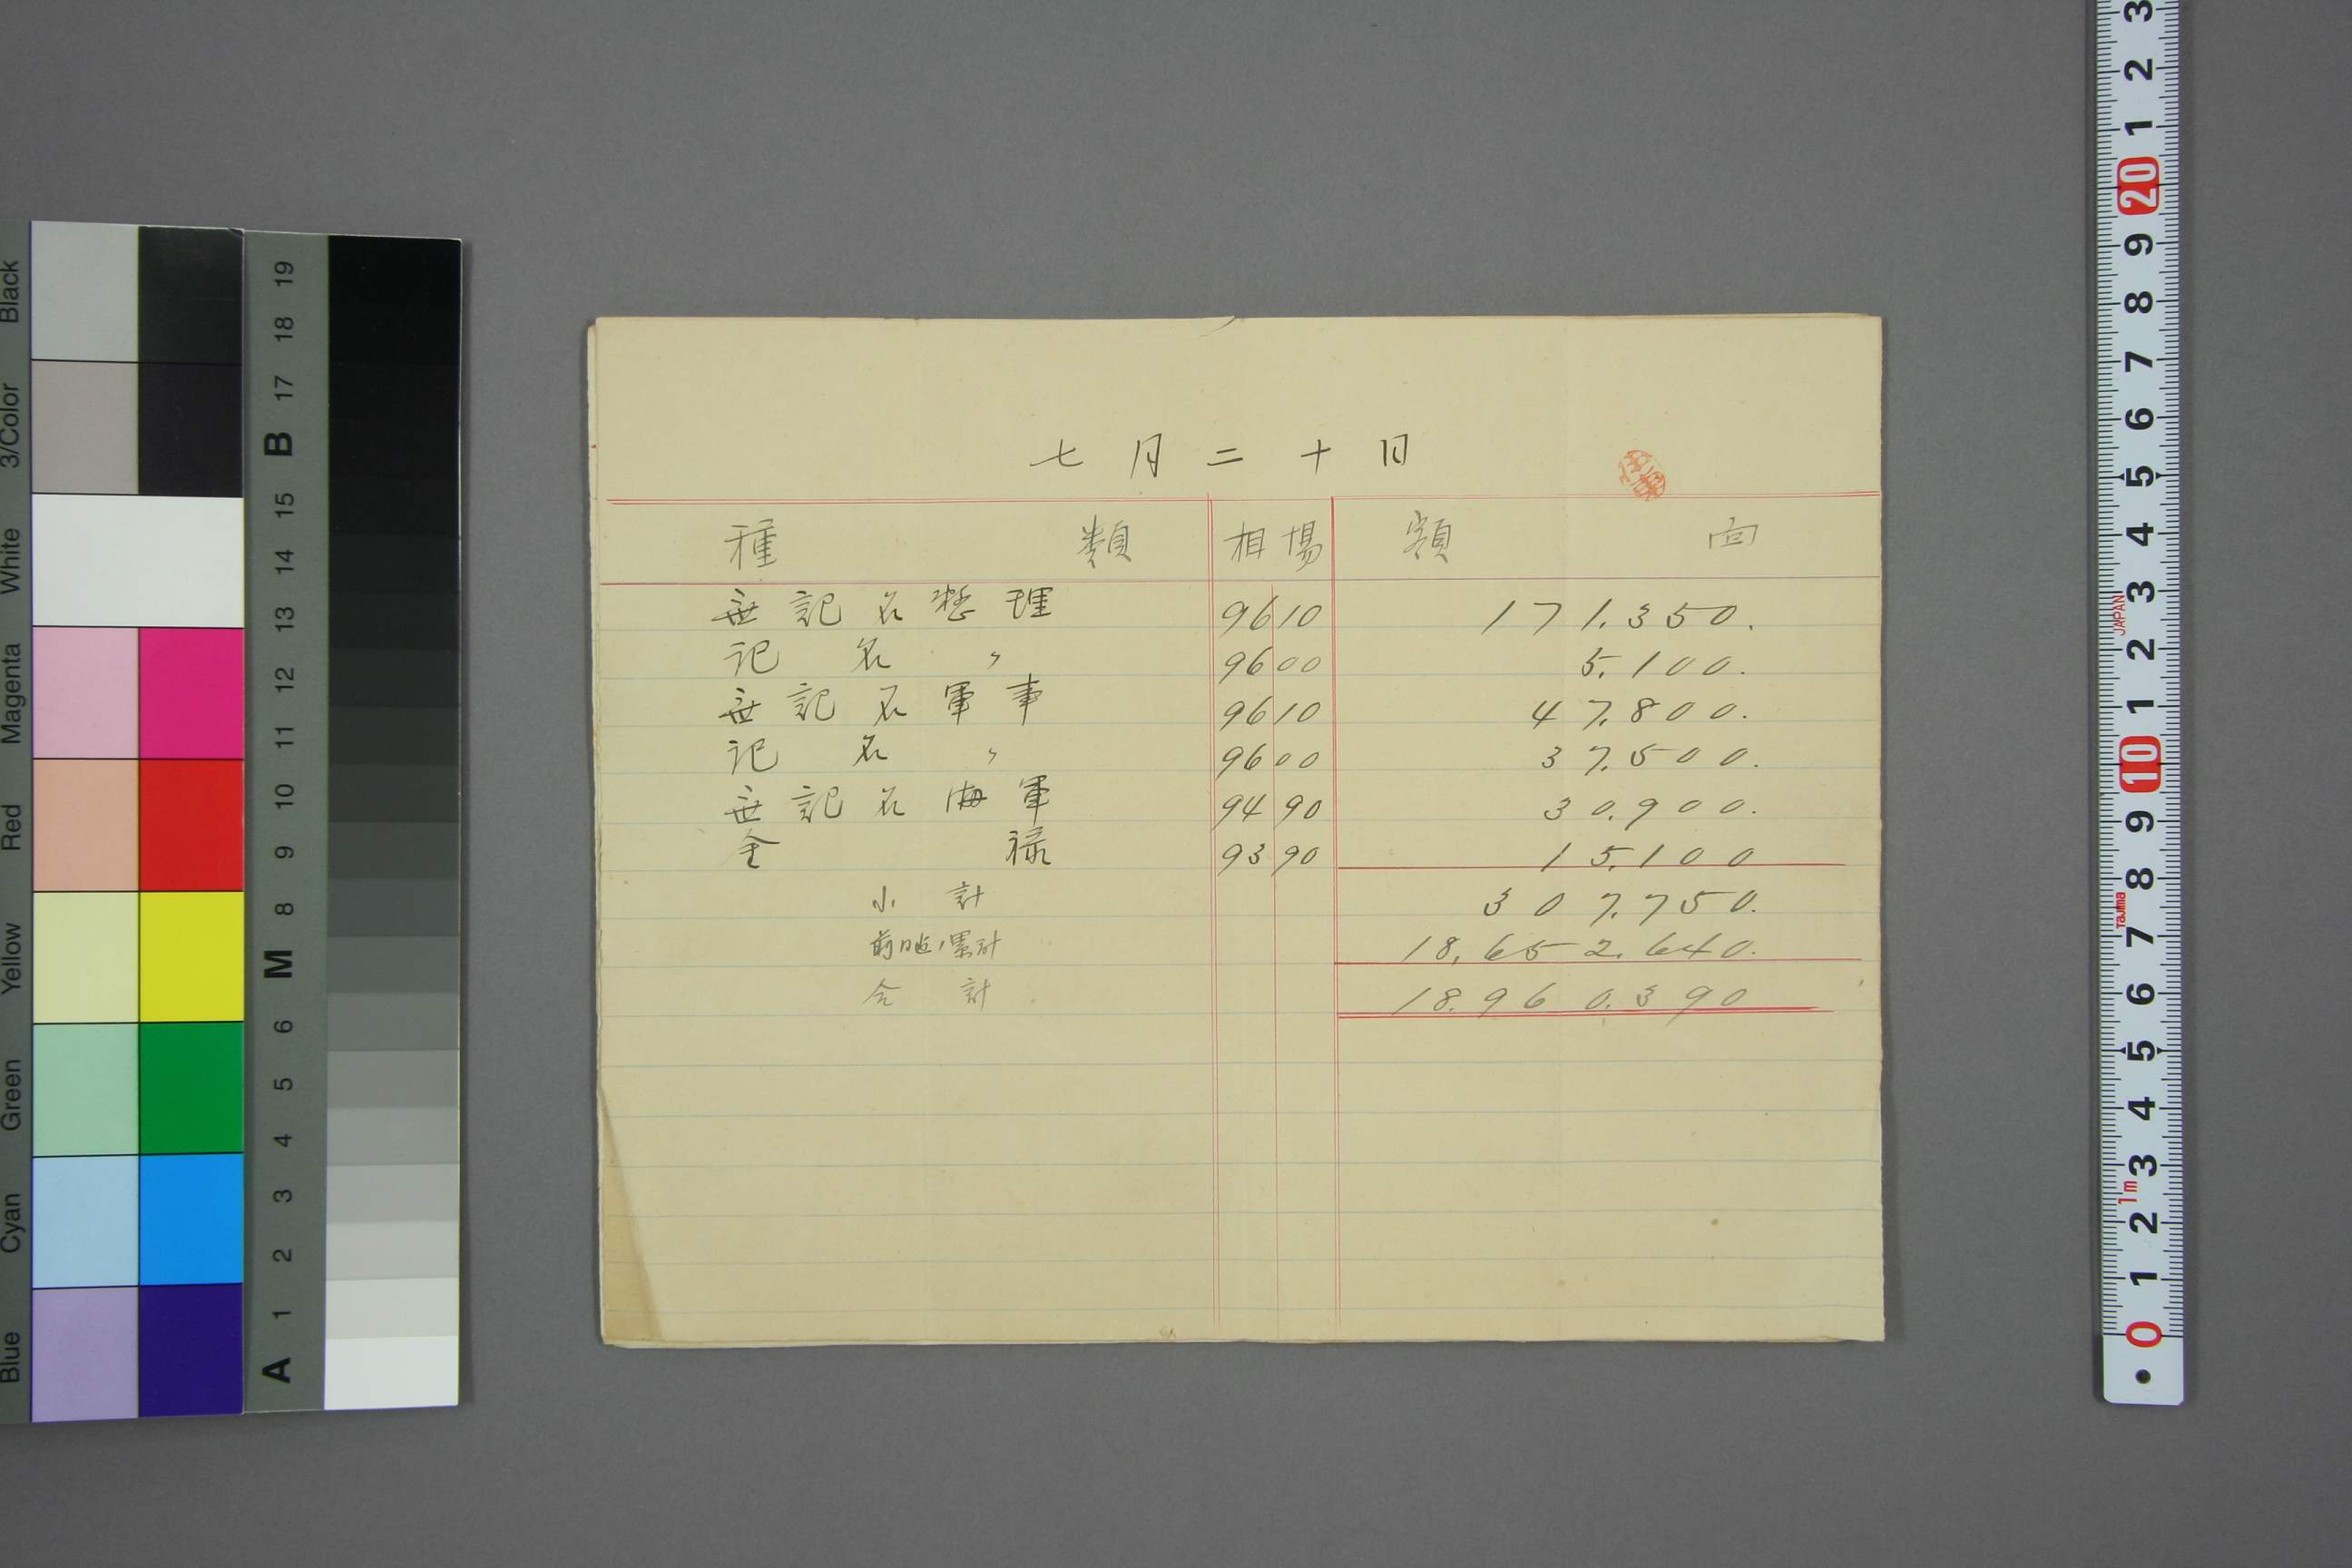 七月二十日
種類 相場 額面
無記名整理 96 10 171.350.
記名 〃 96 00 5.100.
無記名軍事 96 10 47.800.
記名 〃 96 00 37.500.
無記名海軍 94 90 30.900.
金禄 93 90 15.100
小計 307.750.
前日迄ノ累計 18.652.640.
合計 18.960.390
Black
3/Color
White
Magenta
Red
Yellow
Green
Cyan
Blue
19
18
17
B
15
14
13
12
11
10
9
8
M
6
5
4
3
2
1
A
3
2
1
20
9
8
7
6
5
4
3
JAPAN
2
1
10
9
8
Tajima
7
6
5
4
3
1m
2
1
0